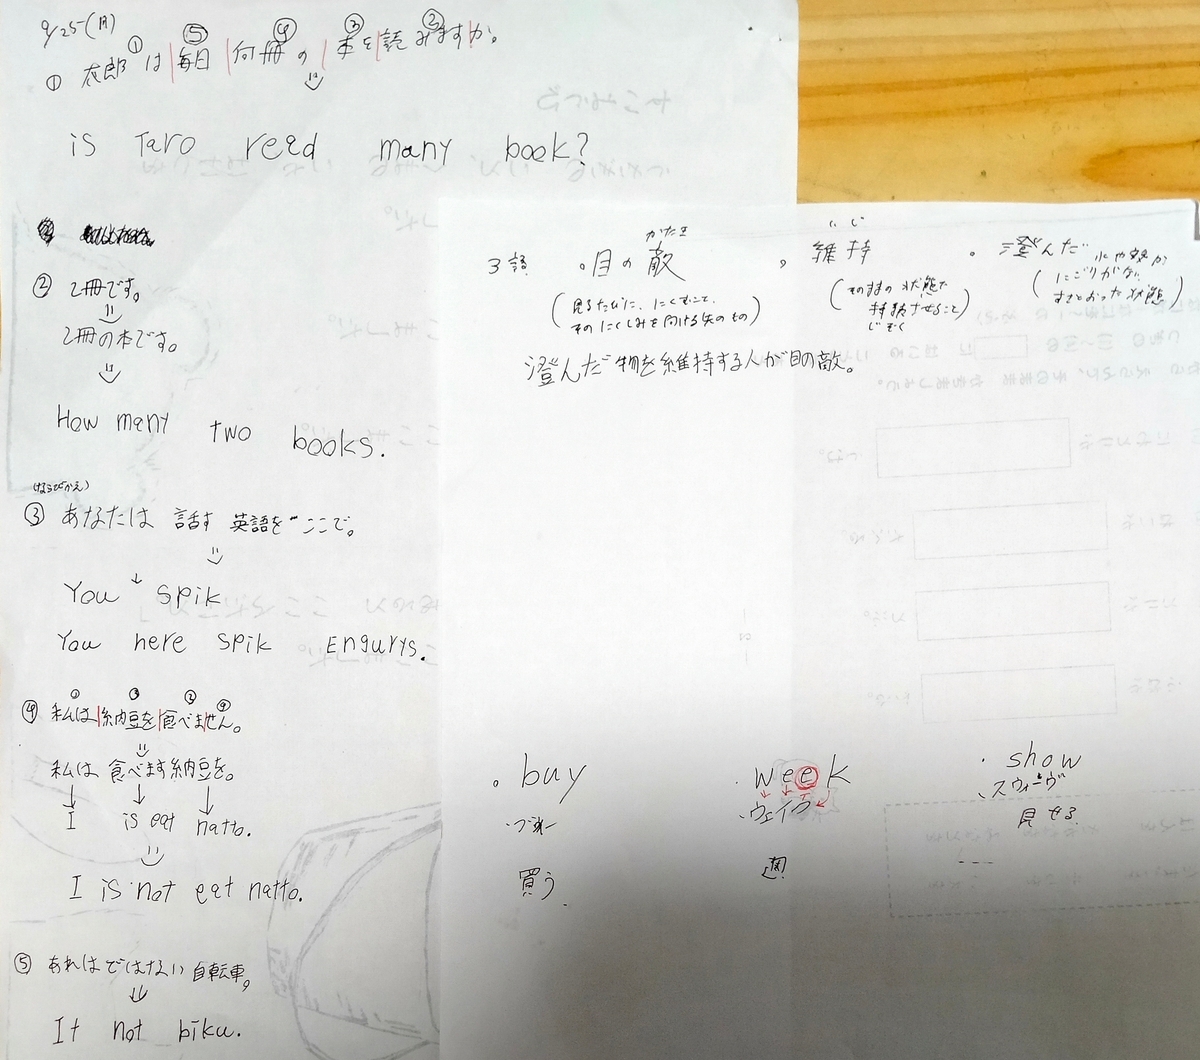 9/25(月)
① 太郎は 毎日 何冊の 本を 読みますか。
① ⑤ ④ ③ ②
is Taro read many book?
② 2冊です。
2冊の本です。
How many two books.
(ならびかえ)
③ あなたは 話す 英語を ここで。
You spik
You here spik Engurys.
① ③ ② ④
④ 私は納豆を食べません。
私は 食べます納豆を。
I is eat natto.
I is not eat natto.
⑤ あれは ではない 自転車。
It not biku.
3語 。目の敵 , 維持 。澄んだ
かたき いじ
(見るたびに、にくむこと、
そのにくしみを向ける矢のもの)
(そのままの 状態で
持続させること)
じぞく
(水や空気が
にごりがない
すきとおった状態)
澄んだ物を維持する人が目の敵。
buy
買う
week
ウェイク
週
show
スウィーヴ
見せる